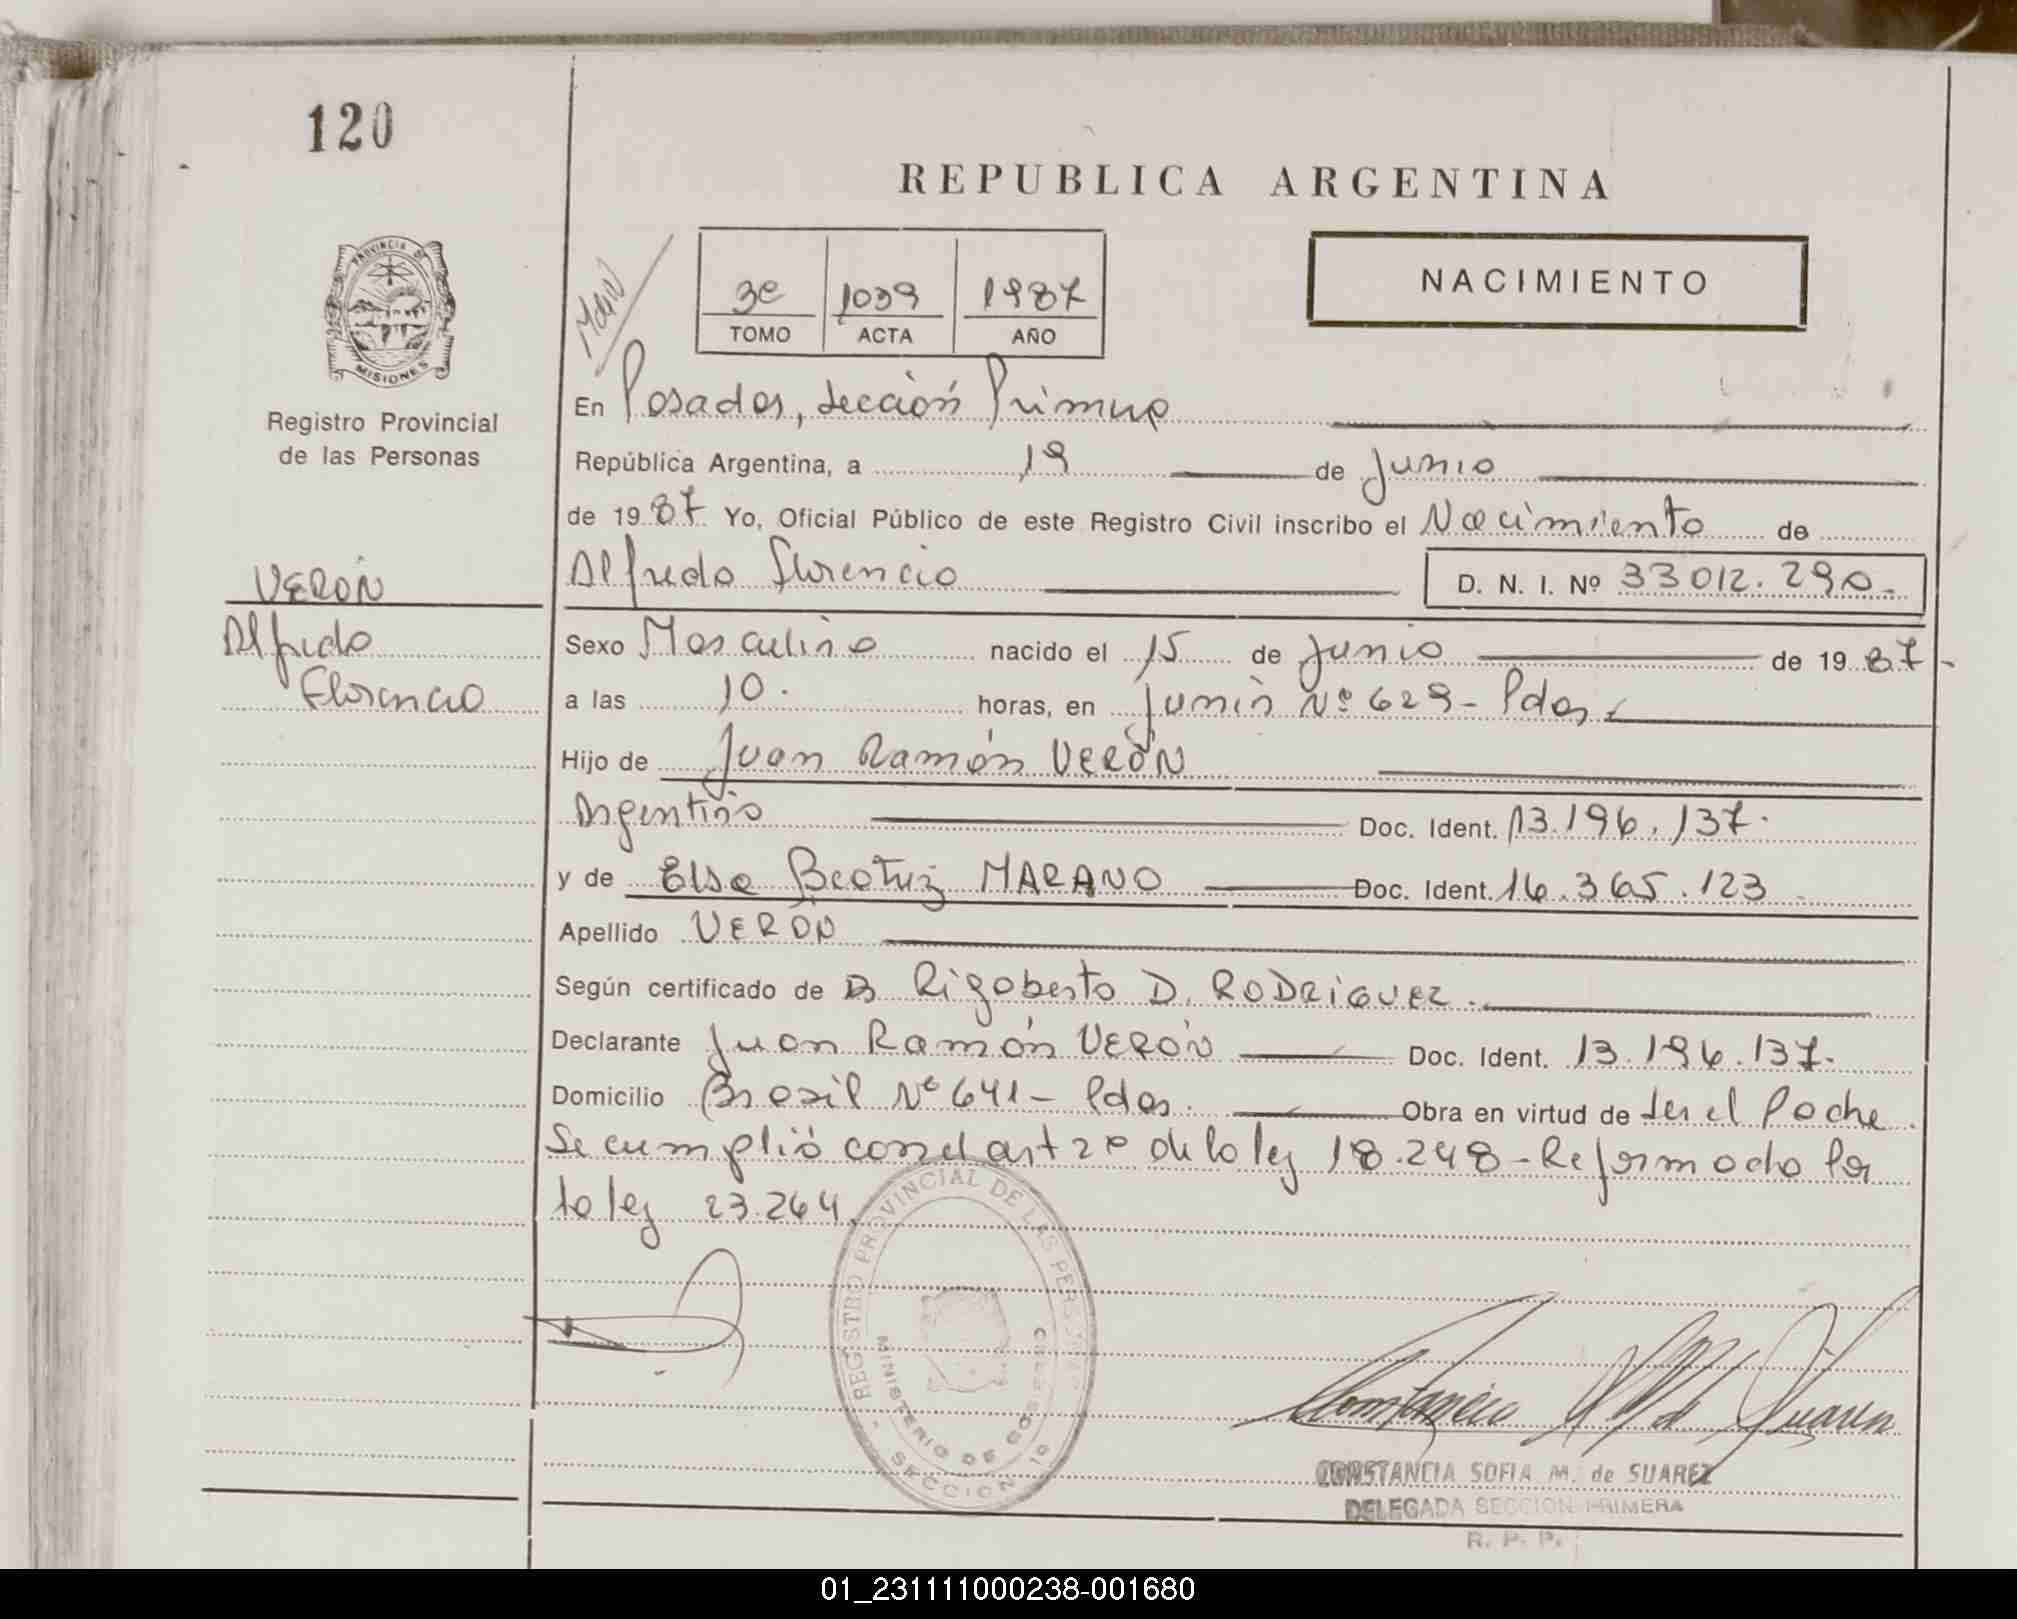 120
REPUBLICA ARGENTINA
PROVINCIA DE
MISIONES
3e 1039 1987
TOMO ACTA AÑO
NACIMIENTO
Registro Provincial
de las Personas
En Posadas, Sección Primera
República Argentina, a 19 de Junio
de 1987 Yo, Oficial Público de este Registro Civil inscribo el Nacimiento de
Alfredo Florencio D. N. I. Nº 33012.290.-
VERÓN
Alfredo
Florencio
Sexo Masculino nacido el 15 de Junio de 1987-
a las 10. horas, en Junín Nº 629- Pdas
Hijo de Juan Ramón VERÓN
Argentino Doc. Ident. 13.196.137.
y de Elsa Beatriz MARANO Doc. Ident. 16.365.123
Apellido VERÓN
Según certificado de Rigoberto D. RODRIGUEZ.
Declarante Juan Ramón VERÓN Doc. Ident. 13.196.137.
Domicilio Brasil Nº 641- Pdas. Obra en virtud de ser el Padre.
Se cumplió con el art 2º de la ley 18.248-Reformado por
la ley 23.264.
REGISTRO PROVINCIAL DE LAS PERSONAS
MINISTERIO DE GOBIERNO
SECCION 1º
CONSTANCIA SOFIA M. de SUAREZ
DELEGADA SECCION PRIMERA
R. P. P.
01_231111000238-001680